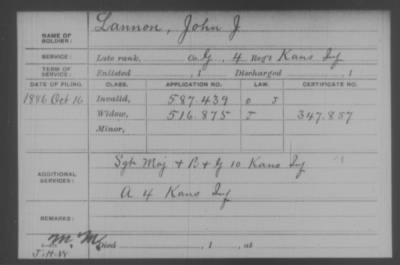 NAME OF SOLDIER: Lannon, John J
SERVICE: Late rank, Co. G, 4 Reg't Kans Inf
TERM OF SERVICE: Enlisted , 1 Discharged , 1
DATE OF FILING. CLASS. APPLICATION NO. LAW. CERTIFICATE NO.
1886 Oct 16 Invalid, 587.439 J
Widow, 516.875 J 347.857
Minor,
ADDITIONAL SERVICES: Sgt Maj + B + G 10 Kans Inf
A 4 Kans Inf
REMARKS:
Died , 1 , at
J.H.W